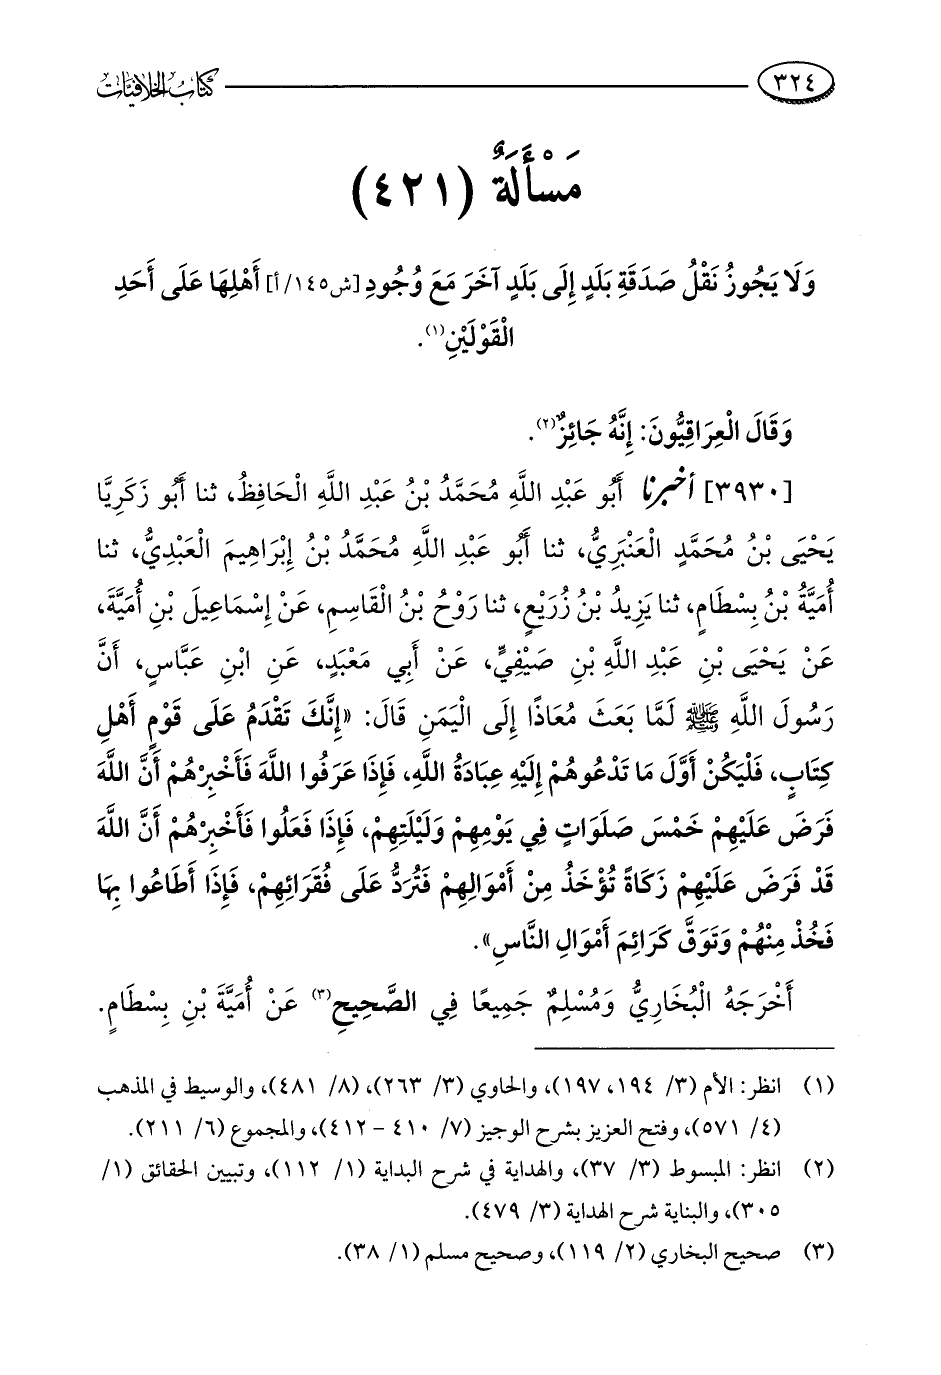 ٣٢٤
كتاب الخلافيات
مَسْأَلَةٌ (٤٢١)
وَلَا يَجُوزُ نَقْلُ صَدَقَةِ بَلَدٍ إِلَى بَلَدٍ آخَرَ مَعَ وُجُودِ [ش١٤٥/ أ] أَهْلِهَا عَلَى أَحَدِ
الْقَوْلَيْنِ(١).
وَقَالَ الْعِرَاقِيُّونَ: إِنَّهُ جَائِزٌ(٢).
[٣٩٣٠] أخبرنا أَبُو عَبْدِ اللَّهِ مُحَمَّدُ بْنُ عَبْدِ اللَّهِ الْحَافِظُ، ثنا أَبُو زَكَرِيَّا
يَحْيَى بْنُ مُحَمَّدٍ الْعَنْبَرِيُّ، ثنا أَبُو عَبْدِ اللَّهِ مُحَمَّدُ بْنُ إِبْرَاهِيمَ الْعَبْدِيُّ، ثنا
أُمَيَّةُ بْنُ بِسْطَامٍ، ثنا يَزِيدُ بْنُ زُرَيْعٍ، ثنا رَوْحُ بْنُ الْقَاسِمِ، عَنْ إِسْمَاعِيلَ بْنِ أُمَيَّةَ،
عَنْ يَحْيَى بْنِ عَبْدِ اللَّهِ بْنِ صَيْفِيٍّ، عَنْ أَبِي مَعْبَدٍ، عَنِ ابْنِ عَبَّاسٍ، أَنَّ
رَسُولَ اللَّهِ ﷺ لَمَّا بَعَثَ مُعَاذًا إِلَى الْيَمَنِ قَالَ: «إِنَّكَ تَقْدَمُ عَلَى قَوْمٍ أَهْلِ
كِتَابٍ، فَلْيَكُنْ أَوَّلَ مَا تَدْعُوهُمْ إِلَيْهِ عِبَادَةُ اللَّهِ، فَإِذَا عَرَفُوا اللَّهَ فَأَخْبِرْهُمْ أَنَّ اللَّهَ
فَرَضَ عَلَيْهِمْ خَمْسَ صَلَوَاتٍ فِي يَوْمِهِمْ وَلَيْلَتِهِمْ، فَإِذَا فَعَلُوا فَأَخْبِرْهُمْ أَنَّ اللَّهَ
قَدْ فَرَضَ عَلَيْهِمْ زَكَاةً تُؤْخَذُ مِنْ أَمْوَالِهِمْ فَتُرَدُّ عَلَى فُقَرَائِهِمْ، فَإِذَا أَطَاعُوا بِهَا
فَخُذْ مِنْهُمْ وَتَوَقَّ كَرَائِمَ أَمْوَالِ النَّاسِ».
أَخْرَجَهُ الْبُخَارِيُّ وَمُسْلِمٌ جَمِيعًا فِي الصَّحِيحِ(٣) عَنْ أُمَيَّةَ بْنِ بِسْطَامٍ.
(١) انظر: الأم (٣/ ١٩٤، ١٩٧)، والحاوي (٣/ ٢٦٣)، (٨/ ٤٨١)، والوسيط في المذهب
(٤/ ٥٧١)، وفتح العزيز بشرح الوجيز (٧/ ٤١٠ - ٤١٢)، والمجموع (٦/ ٢١١).
(٢) انظر: المبسوط (٣/ ٣٧)، والهداية في شرح البداية (١/ ١١٢)، وتبيين الحقائق (١/
٣٠٥)، والبناية شرح الهداية (٣/ ٤٧٩).
(٣) صحيح البخاري (٢/ ١١٩)، وصحيح مسلم (١/ ٣٨).